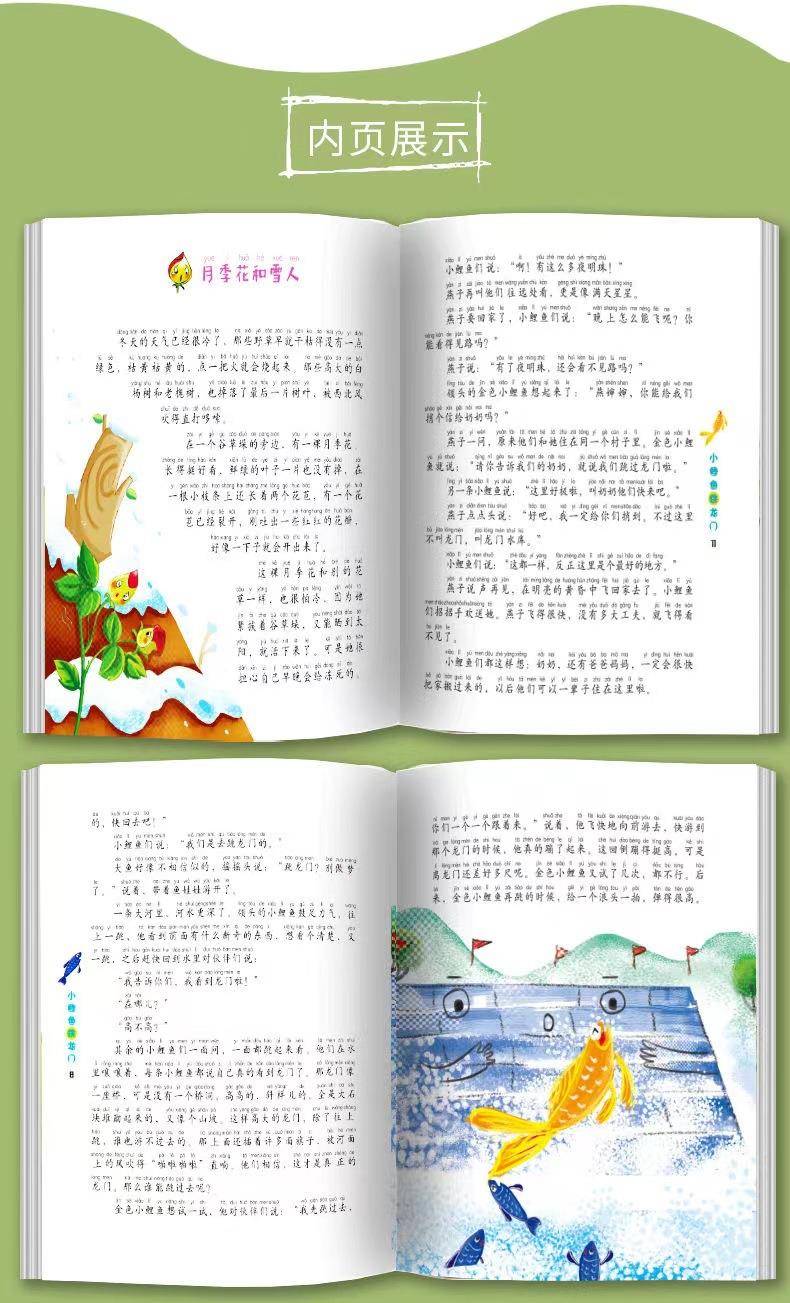 内页展示
月季花和雪人
冬天的天气已经很冷了，那些野草早就干枯得没有一点
绿色，枯黄枯黄的，点一把火就会烧起来，那些高大的白
杨树和老槐树，也掉落了最后一片树叶，被西北风
吹得直打哆嗦。
在一个谷草垛的旁边，有一棵月季花，
长得挺好看，鲜绿的叶子一片也没有掉，在
一根小枝条上还长着两个花苞，有一个花
苞已经裂开，刚吐出一些红红的花瓣，
好像一下子就会开出来了。
这棵月季花和别的花
草一样，也很怕冷。因为她
紧挨着谷草垛，又能晒到太
阳，就活下来了。可是她很
担心自己早晚会给冻死的。
小鲤鱼们说：“啊！有这么多夜明珠！”
燕子再叫他们往远处看，更是像满天星星。
燕子要回家了，小鲤鱼们说：“晚上怎么能飞呢？你
能看得见路吗？”
燕子说：“有了夜明珠，还会看不见路吗？”
领头的金色小鲤鱼想起来了：“燕婶婶，你能给我们
捎个信给奶奶吗？”
燕子一问，原来他们和她住在同一个村子里。金色小鲤
鱼就说：“请你告诉我们的奶奶，就说我们跳过龙门啦。”
另一条小鲤鱼说：“这里好极啦，叫奶奶他们快来吧。”
燕子点点头说：“好吧，我一定给你们捎到。不过这里
不叫龙门，叫龙门水库。”
小鲤鱼们说：“这都一样，反正这里是个最好的地方。”
燕子说声再见，在明亮的黄昏中飞回家去了。小鲤鱼
们招招手欢送她。燕子飞得很快，没有多大工夫，就飞得看
不见了。
小鲤鱼们都这样想：奶奶，还有爸爸妈妈，一定会很快
把家搬过来的，以后他们可以一辈子住在这里啦。
小鲤鱼跳龙门
11
的，快回去吧！”
小鲤鱼们说：“我们是去跳龙门的。”
大鱼好像不相信似的，摇摇头说：“跳龙门？别做梦
了。”说着，带着鱼娃娃游开了。
一条大河里，河水更深了，领头的小鲤鱼鼓足力气，往
上一跳，他看到前面有什么新奇的东西，想看个清楚，又
一跳，之后赶快回到水里对伙伴们说：
“我告诉你们，我看到龙门啦！”
“在哪儿？”
“高不高？”
其余的小鲤鱼们一面问，一面都跳起来看。他们在水
里嚷嚷着，每条小鲤鱼都说自己真的看到龙门了。那龙门像
一座桥，可是没有一个桥洞，高高的，斜样儿的，全是大石
块堆砌起来的，又像个山坡。这样高大的龙门，除了往上
跳，谁也游不过去的。那上面还插着许多面旗子，被河面
上的风吹得“啪啦啪啦”直响。他们相信，这才是真正的
龙门。那么谁能跳过去呢？
金色小鲤鱼想试一试，他对伙伴们说：“我先跳过去，
小鲤鱼跳龙门
8
你们一个一个跟着来。”说着，他飞快地向前游去，快游到
那个龙门的时候，他真的蹦了起来。这回倒蹦得挺高，可是
离龙门还差好多尺呢。金色小鲤鱼又试了几次，都不行。后
来，金色小鲤鱼再跳的时候，给一个浪头一拍，弹得很高。